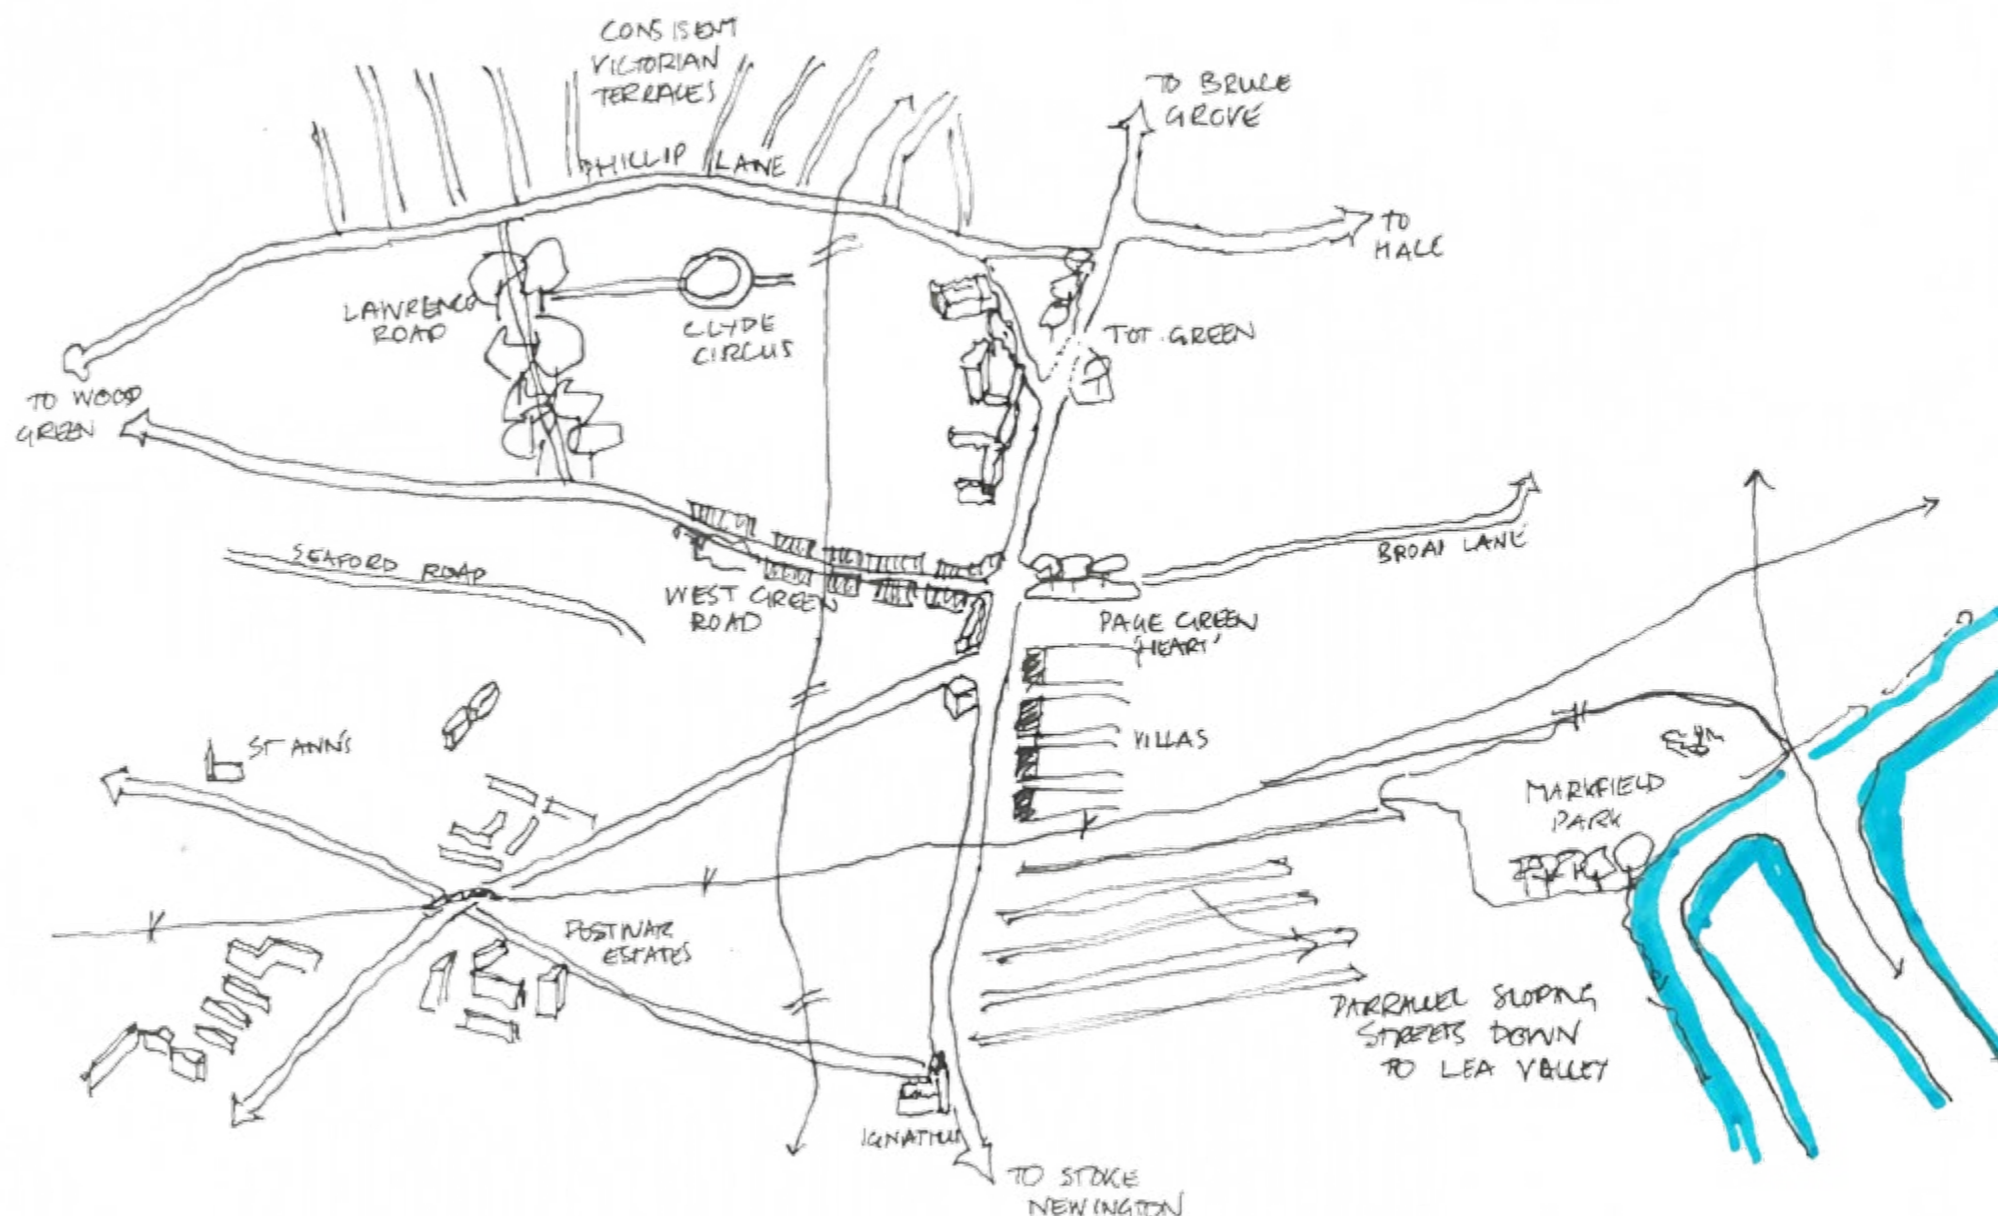 CONSISENT
VICTORIAN
TERRACES
TO BRUCE
GROVE
PHILLIP LANE
TO
HALE
LAWRENCE
ROAD
CLYDE
CIRCUS
TOT. GREEN
TO WOOD
GREEN
SEAFORD ROAD
BROAD LANE
WEST GREEN
ROAD
PAGE GREEN
'HEART'
ST ANN'S
VILLAS
MARKFIELD
PARK
POSTWAR
ESTATES
PARRALLEL SLOPING
STREETS DOWN
TO LEA VALLEY
IGNATIUS
TO STOKE
NEWINGTON